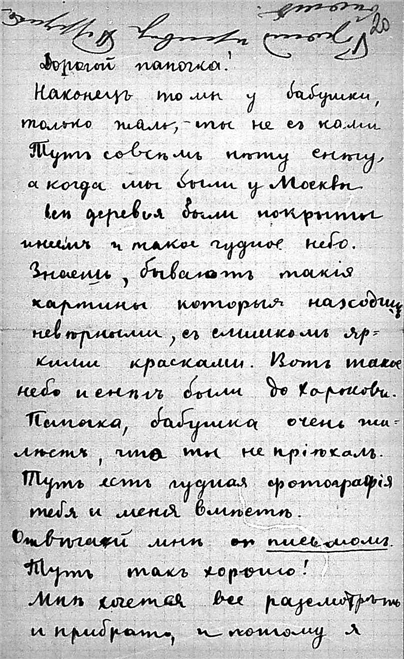 20
Дорогой папочка!
Наконецъ то мы у бабушки,
только жаль, – ты не съ нами
Тутъ совсѣмъ нѣту снѣгу,
а когда мы были у Москвы
всѣ деревья были покрыты
инеемъ и такое чудное небо.
Знаешь, бываютъ такія
картины которыя находишь
невѣрными, съ слишкомъ яр-
кими красками. Вотъ такое
небо и снѣгъ были до Харькова.
Папочка, бабушка очень жа-
лѣетъ, что ты не пріѣхалъ.
Тутъ есть чудная фотографія
тебя и меня вмѣстѣ.
Отвѣчай мнѣ письмомъ.
Тутъ такъ хорошо!
Мнѣ хочется все разсмотрѣть
и прибрать, и потому я